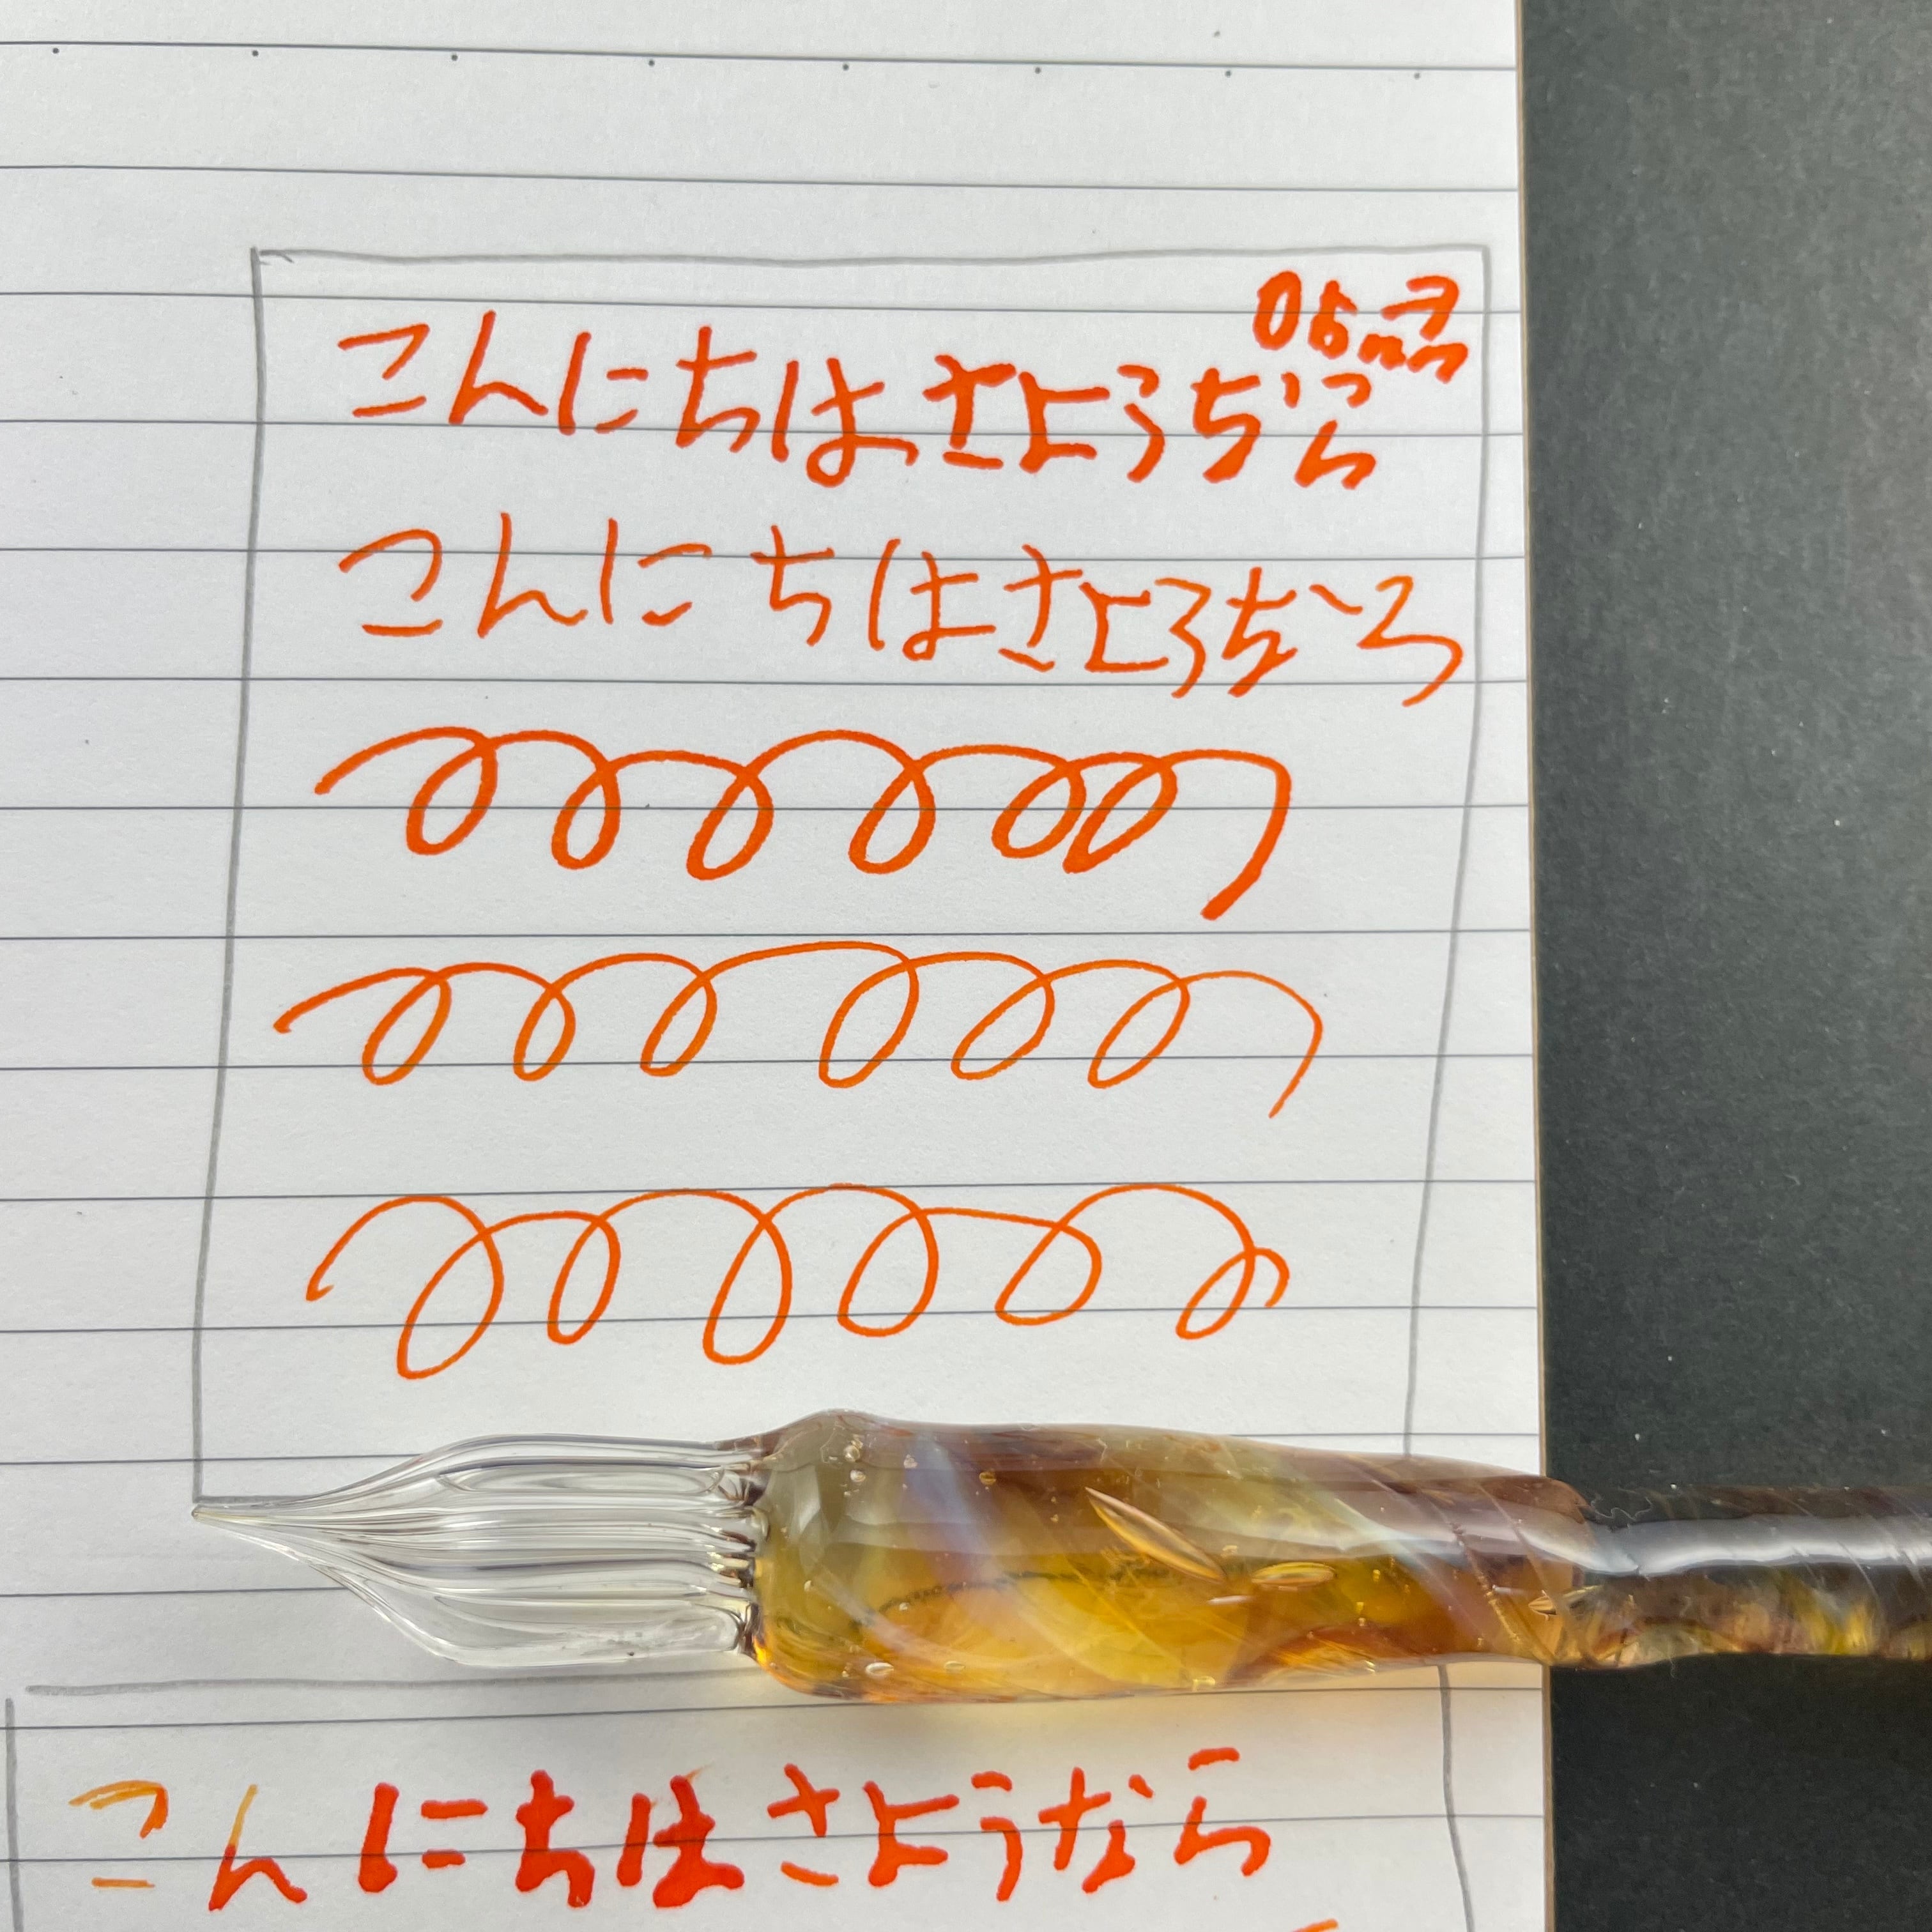 こんにちはさようなら
こんにちはさようなら
こんにちはさようなら